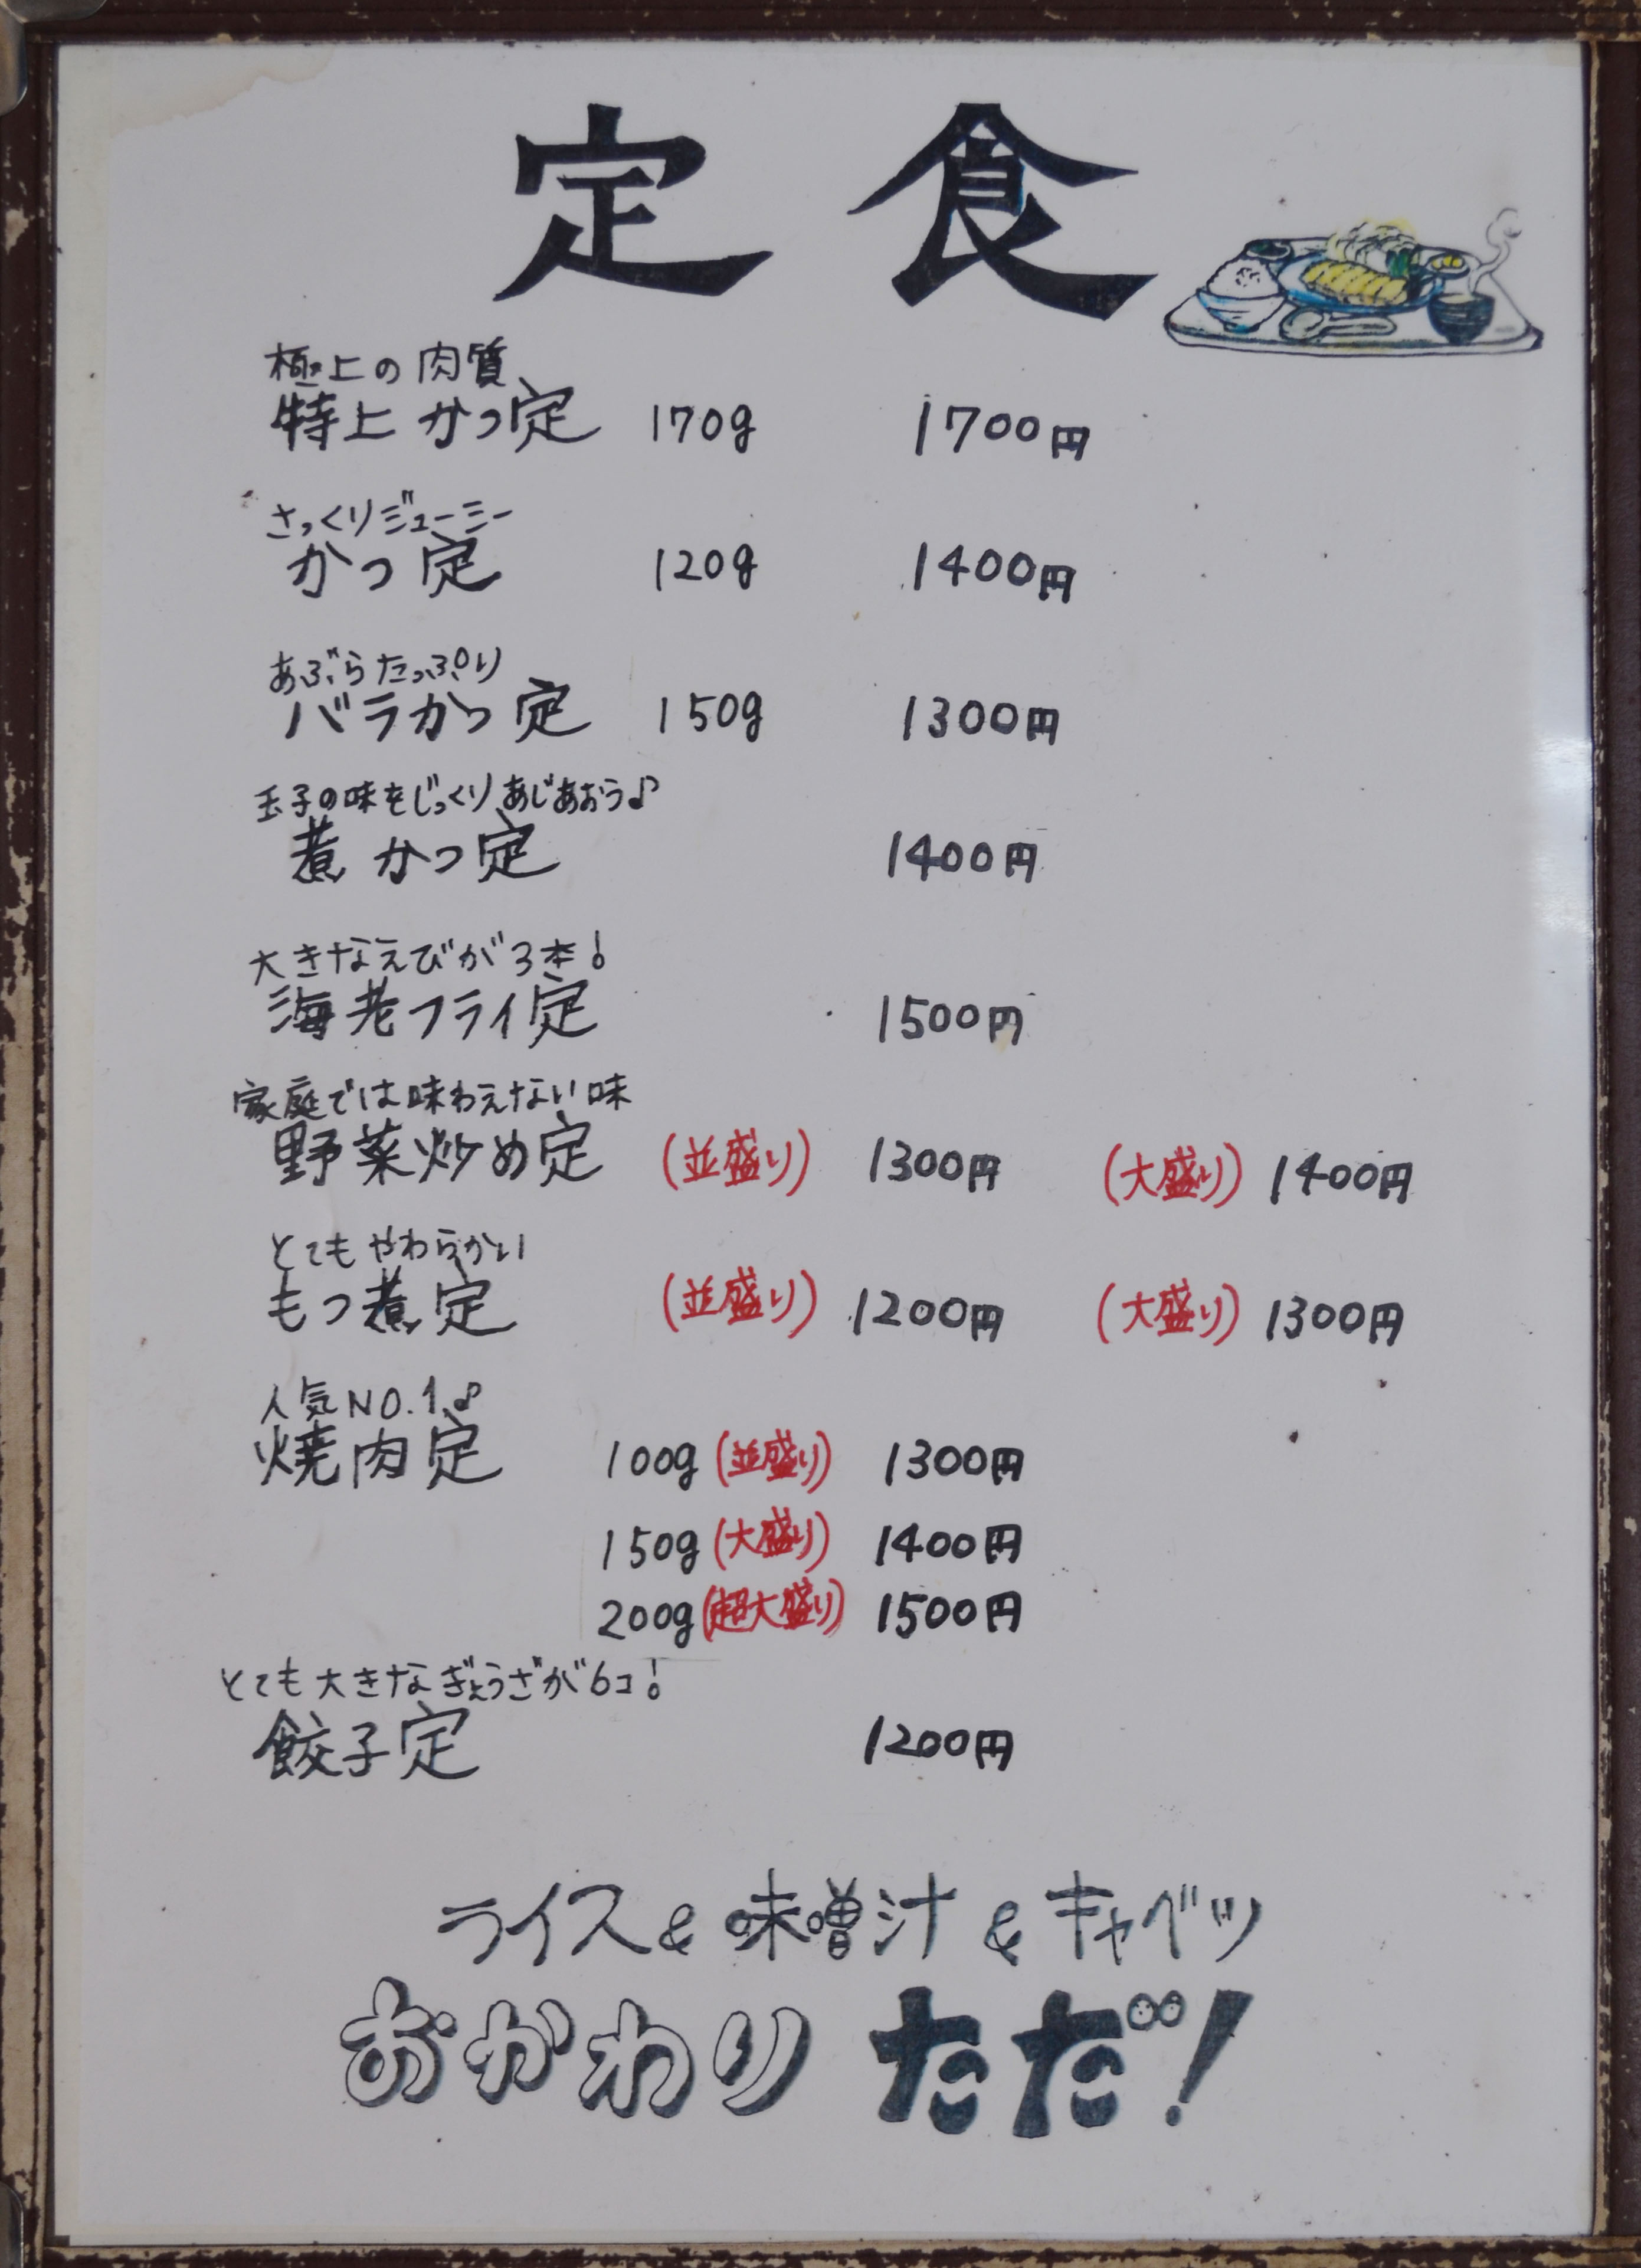 定食
極上の肉質
特上かつ定 170g 1700円
さっくりジューシー
かつ定 120g 1400円
あぶらたっぷり
バラかつ定 150g 1300円
玉子の味をじっくりあじあおう♪
煮かつ定 1400円
大きなえびが3本!
海老フライ定 1500円
家庭では味わえない味
野菜炒め定 (並盛り) 1300円 (大盛り) 1400円
とてもやわらかい
もつ煮定 (並盛り) 1200円 (大盛り) 1300円
人気NO.1♪
焼肉定 100g (並盛り) 1300円
150g (大盛り) 1400円
200g (超大盛り) 1500円
とても大きなぎょうざが6コ!
餃子定 1200円
ライス&味噌汁&キャベツ
おかわりただ!